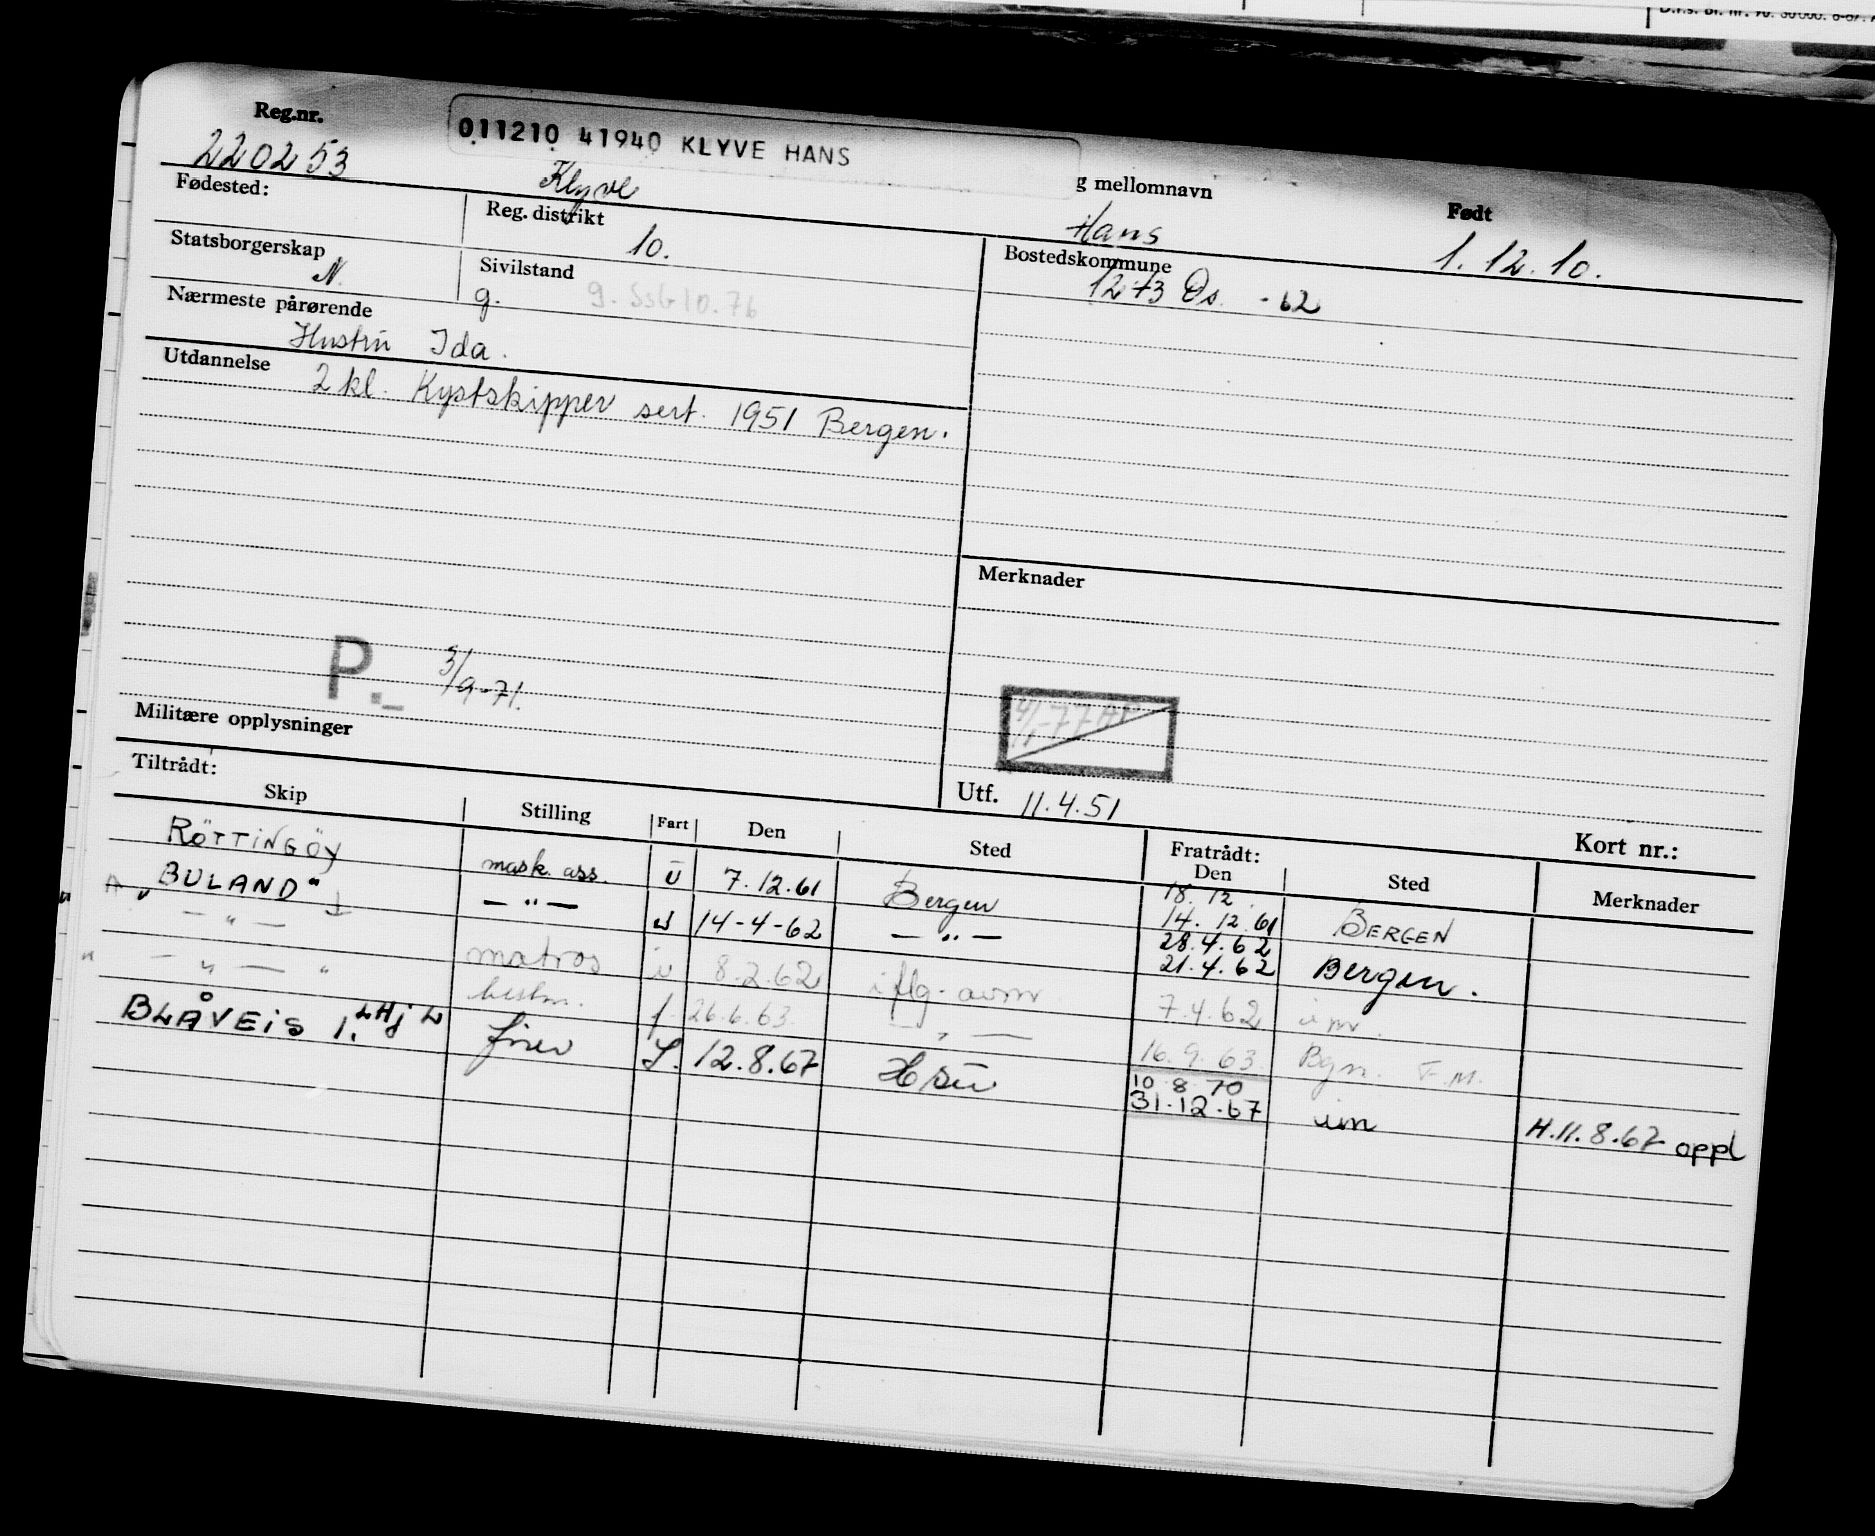 Reg.nr.
011210 41940 KLYVE HANS
220253
Klyve
g mellomnavn
Hans
Født
1.12.10.
Fødested:
Reg. distrikt
10.
Bostedskommune
Statsborgerskap
N.
Sivilstand
g.
-62
Nærmeste pårørende
Hustru Ida.
Utdannelse
2 kl. Kystskipper sert. 1951 Bergen.
Merknader
P.
3/9-71.
Militære opplysninger
Utf. 11.4.51
Tiltrådt:
Fratrådt:
Kort nr.:
Skip Stilling Fart Den Sted Den Sted Merknader
RÖTTINGÖY mask. ass. u 7.12.61 Bergen 18.12. 14.12.61 BERGEN
"BULAND" — " — 14-4-62 — " — 28.4.62 21.4.62 Bergen.
— " — matros u 8.2.62 7.4.62
— " — " 26.6.63 — " — 16.9.63 Bgn. F.M.
BLÅVEIS 1. 12.8.67 10 8 70 31.12.67 um H.11.8.67 oppl